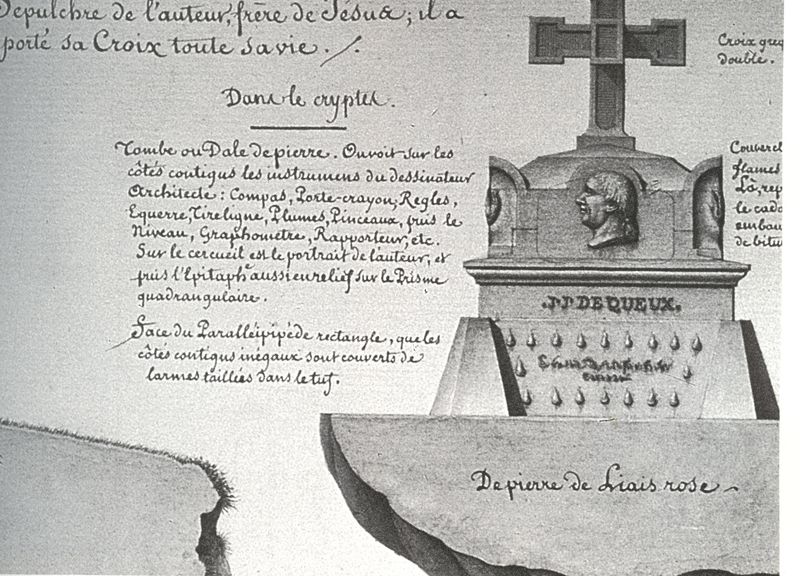 Sepulchre de l'auteur, frère de Jésus; il a
porté sa Croix toute sa vie.
Dans le cryptes.
Tombe ou Dale de pierre. On voit sur les
côtés contigus les instrumens du dessinateur
Architecte: Compas, Porte-crayon, Regles,
Equerre, Tireligne, Plumes, Pinceaux, puis le
Niveau, Graphometre, Rapporteur, etc.
Sur le cercueil est le portrait de l'auteur, et
puis l'Epitaph aussi en relief sur le Prisme
quadrangulaire.
Face du Paralléipipède rectangle, que les
côtés contigus inégaux sont couverts de
larmes taillées dans le tuf.
Croix grec
double.
Couvercl
flames
Là, rep
le cada
embau
de bitu
.J.J. DEQUEUX.
De pierre de Liais rose